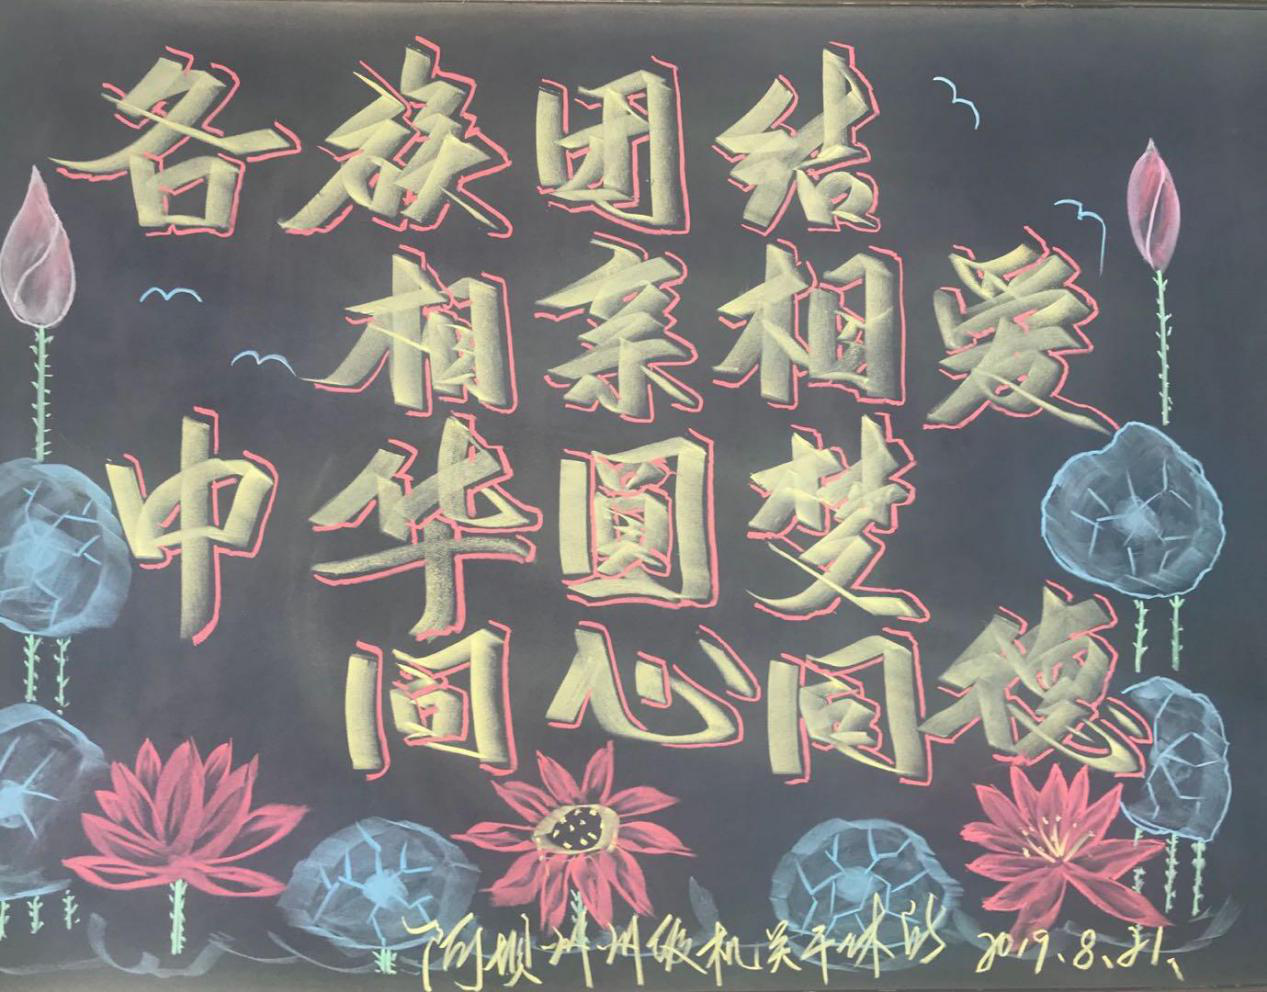 各族团结
相亲相爱
中华圆梦
同心同德
阿坝州州级机关干休所 2019.8.21.